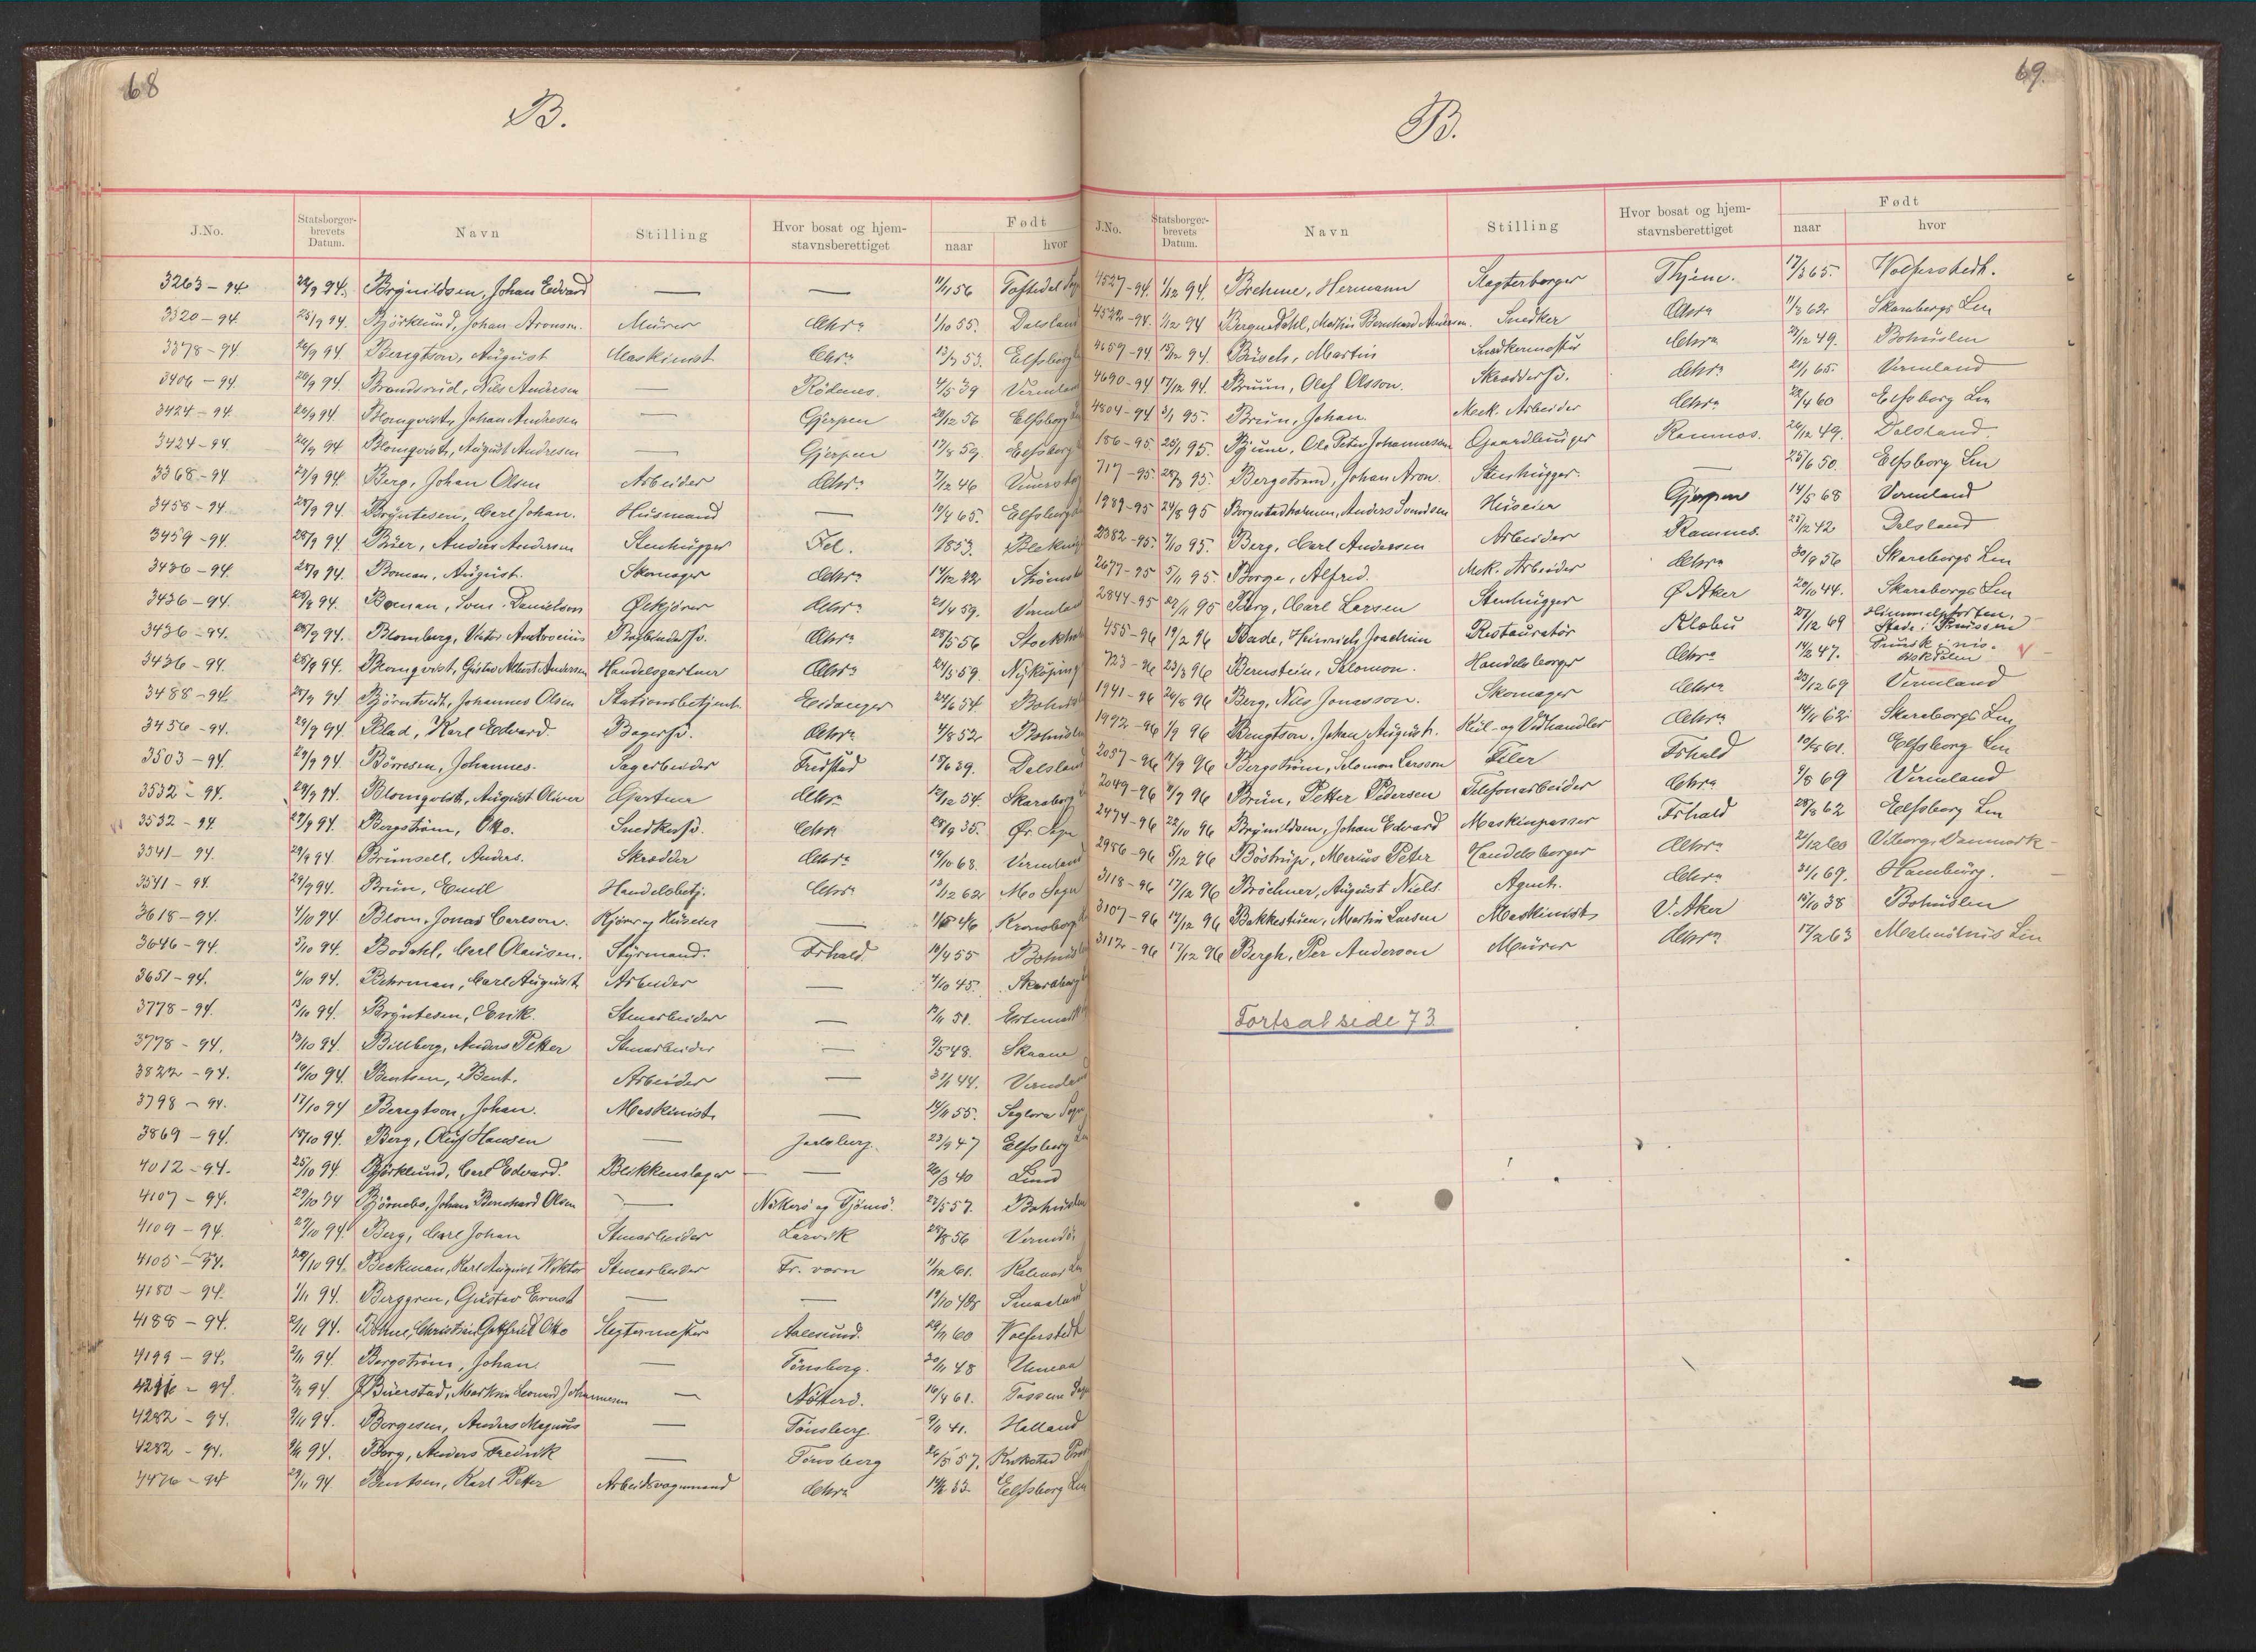 68
B.
J.No. Statsborger-brevets Datum. Navn Stilling Hvor bosat og hjem-stavnsberettiget Født naar hvor
3263-94. 22/9 94. Brynildsen, Johan Edvard — — 11/1 56 Toftedal Sogn
3320-94. 25/9 94. Björklund, Johan Aronsen. Murer Chra 1/10 55. Dalsland
3378-94. 26/9 94. Bengtson, August Maskinist Chra 13/7 53. Elfsborg
3406-94. 26/9 94. Brandsrud, Nils Andersen Rödenes. 4/5 39 Vermland
3424-94. 26/9 94. Blomqvist, Johan Andresen — Gjerpen 20/12 56 Elfsborg Len
3424-94. 26/9 94 Blomqvist, August Andresen — Gjerpen 17/8 59. Elfsborg
3368-94. 27/9 94. Berg, Johan Olsen Arbeider Chra 7/12 46
3458-94. 28/9 94. Bryntesen, Carl Johan. Husmand — 19/4 65. Elfsborg
3459-94. 28/9 94. Buer, Anders Andersen Stenhugger Fet. 1853. Bleking
3436-94. 28/9 94. Boman, August. Skomager Chra 14/12 22 Strömst
3436-94. 28/9 94. Boman, Sven Danielson Ølkjører Chra 21/4 59. Vermland
3436-94. 28/9 94. Blomberg, Victor Ambrosius Bogbindersv. Chra 28/5 56 Stockholm
3436-94. 28/9 94. Blomqvist, Gustav Albert Andersen Handelsgartner Chra 24/3 59. Nyköping
3488-94. 28/9 94. Bjørntvedt, Johannes Olsen Stationsbetjent Eidanger 24/6 54. Bohuslen
3456-94. 29/9 94. Blad, Karl Edvard Bagersv. Chra 4/8 52 Bohuslen
3503-94. 29/9 94. Børresen, Johannes. Sagarbeider Fredstad 18/6 29. Dalsland
3532-94. 29/9 94. Blomqvist, August Oliver Gartner Chra 12/12 54. Skaraborg
3532-94. 29/9 94. Bergström, Otto. Snedkersv. Chra 28/9 35. Ør. Sogn
3541-94. 29/9 94. Brunsell, Anders. Skrædder Chra 19/10 68. Vermland
3541-94. 29/9 94. Brun, Emil Handelsbetj. Chra 13/12 62 Mo Sogn
3618-94. 4/10 94. Blom, Jonas Carlson. Kjører og Huseier — 11/8 46 Kronoberg
3646-94. 5/10 94. Bodahl, Carl Olausen. Styrmand. Frhald. 10/4 55 Bohuslen
3651-94. 6/10 94. Behrman, Carl August Arbeider — 4/10 45. Skaraborg
3778-94. 13/10 94. Bryntesen, Erik. Stenarbeider — 17/11 51.
3778-94. 13/10 94. Billberg, Anders Petter Stenarbeider — 9/5 48. Skaane
3822-94. 16/10 94. Bentsen, Bent. Arbeider — 31/1 44. Vermland
3798-94. 17/10 94 Bengtson, Johan. Maskinist — 14/11 55. Seglora Sogn
3869-94. 18/10 94. Berg, Oluf Hansen — Jarlsberg. 23/9 47 Elfsborg Len
4012-94. 25/10 94 Björklund, Carl Edvard. Blikkenslager — 26/3 40 Lund
4107-94. 29/10 94 Bjørnebo, Johan Bernhard Olsen — Nötterö og Tjømö. 27/5 57. Bohuslen
4109-94. 29/10 94 Berg, Carl Johan Stenarbeider Larvik 28/8 56
4105-94. 29/10 94. Beckman, Karl August Viktor Stenarbeider Fr. værn 11/12 61. Kalmar Len
4180-94. 1/11 94. Berggren, Gustav Ernst — — 19/10 48 Smaaland
4188-94. 2/11 94. Böhme, Christian Gotfried Otto Slagtermester Aalesund. 29/7 60 Wolferstedt
4199-94. 2/11 94. Bergström, Johan. — Tönsberg. 20/11 48 Umeaa
4216-94. 3/11 94. Buerstad, Martin Leonard Johannesen — Nötterö. 16/4 61. Tossene Sogn
4282-94. 9/11 94. Borgesen, Anders Magnus — Tönsberg. 9/11 41. Halland
4282-94. 9/11 94. Borg, Anders Fredrik — Tönsberg 26/5 57.
4476-94 29/11 94 Bentsen, Karl Petter Arbeidsvognmand Chra 14/6 53. Elfsborg Len
69.
B.
J.No. Statsborger-brevets Datum. Navn Stilling Hvor bosat og hjem-stavnsberettiget Født naar hvor
4527-94. 1/12 94. Brehme, Hermann Slagterborger Thjem. 17/3 65. Wolferstedt.
4522-94. 1/12 94 Bergendahl, Mathis Bernhard Andersen. Snedker Chra 11/3 62 Skaraborgs Len
4659-94 15/12 94. Busch, Martin Snedkermester Chra 27/12 49. Bohuslen
4690-94 17/12 94. Bruun, Olof Olsson. Skræddersv. Chra 21/1 65. Vermland
4804-94 3/1 95. Brun, Johan. Mek. Arbeider Chra 22/4 60 Elfsborg Len
186-95 25/1 95. Bjune, Ole Peter Johannessen Gaardbruger Ramnes. 26/12 49. Dalsland.
717-95. 28/3 95. Bergstrøm, Johan Aron. Stenhugger. — 25/6 50. Elfsborg Len
1989-95 24/8 95 Borgestadholmen, Anders Svendsen Huseier Gjerpen 14/5 68 Vermland
2382-95. 7/10 95. Berg, Carl Andersen Arbeider Ramnes. 25/12 42 Dalsland
2677-95 5/11 95. Borge, Alfred. Mek. Arbeider Chra 30/9 56 Skaraborgs Len
2844-95 27/11 95 Berg, Carl Larsen Stenhugger Ø. Aker 20/10 44. Skaraborgs Len
455-96 19/2 96 Bade, Heinrich Joachim Restauratør Klæbu 27/12 69 Himmelpforten, Stade i Prussen
723-96 23/3 96 Bernstein, Salomon. Handelsborger Chra 14/2 47.
1941-96 26/8 96 Berg, Nils Jonasson. Skomager Chra 23/12 69 Vermland
1992-96 1/9 96 Bengtson, Johan August. Kul- og Vedhandler Chra 14/11 62 Skaraborgs Len
2057-96 11/9 96 Bergström, Salomon Larsson Filer Frhald 10/8 61. Elfsborg Len
2049-96 8/9 96 Brun, Petter Pedersen Telefonarbeider Chra 9/8 69 Vermland
2474-96 22/10 96 Brynildsen, Johan Edvard Maskinpasser Frhald 28/3 62 Elfsborg Len
2986-96 5/12 96 Böstrup, Marius Peter Handelsborger Chra 21/12 60 Viborg, Danmark
3118-96 17/12 96 Bröchner, August Niels. Agent. Chra 31/1 69. Hamburg.
3107-96 17/12 96 Bakkestuen, Martin Larsen Maskinist V. Aker 15/10 38 Bohuslen
3112-96 17/12 96 Bergh, Per Anderson Murer Chra 17/2 63 Malmöhus Len
Fortsat side 73